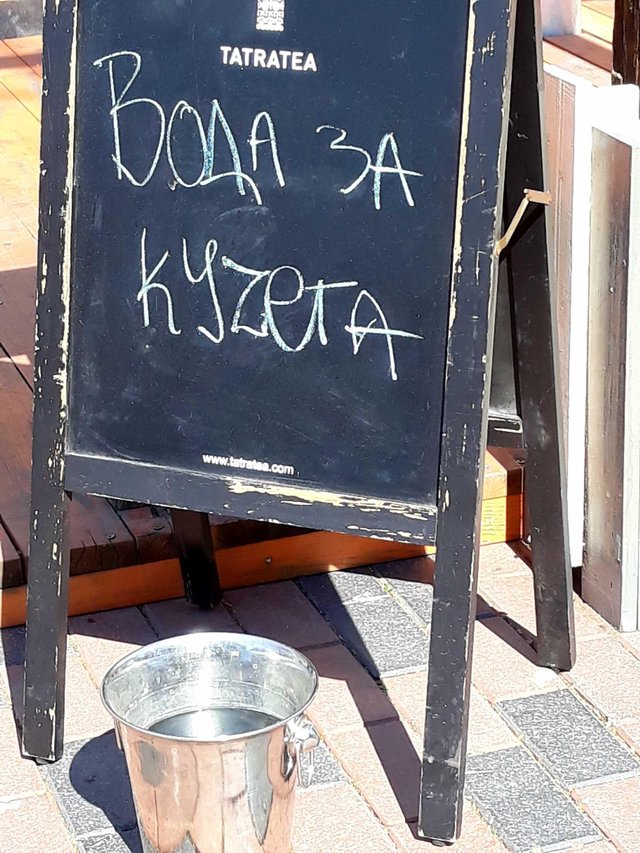 TATRATEA
Вода за
кузета
www.tatratea.com